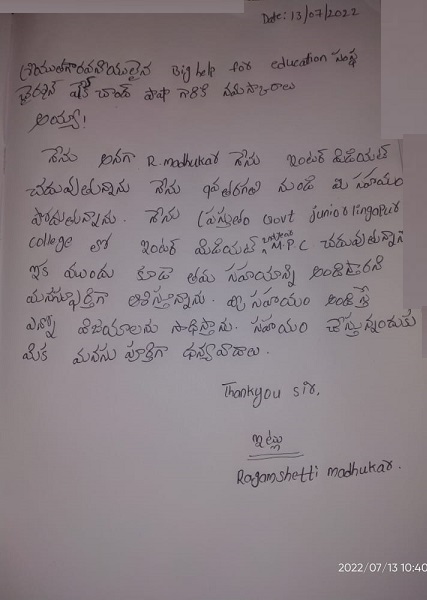 Date: 13/07/2022
శ్రీయుతగౌరవనీయులైన Big help for education సంస్థ
ఛైర్మన్ షేక్ చాంద్ పాషా గారికి నమస్కారాలు
అయ్యా!
నేను అనగా R. madhukar నేను ఇంటర్ మీడియట్
చదువుతున్నాను నేను 9వతరగతి నుండి మీ సహాయం
పొందుతున్నాను. నేను ప్రస్తుతం Govt junior lingapur
college లో ఇంటర్ మీడియట్ 2nd year M.P.C చదువుతున్నాను
ఇక ముందు కూడా తమ సహాయాన్ని అందిస్తారని
మనస్ఫూర్తిగా ఆశిస్తున్నాను. మీ సహాయం అందిస్తే
ఎన్నో విజయాలను సాధిస్తాను. సహాయం చేస్తున్నందుకు
మీకు మనసు పూర్తిగా ధన్యవాదాలు.
Thankyou sir.
ఇట్లు
Ragamshetti madhukar.
2022/07/13 10:40